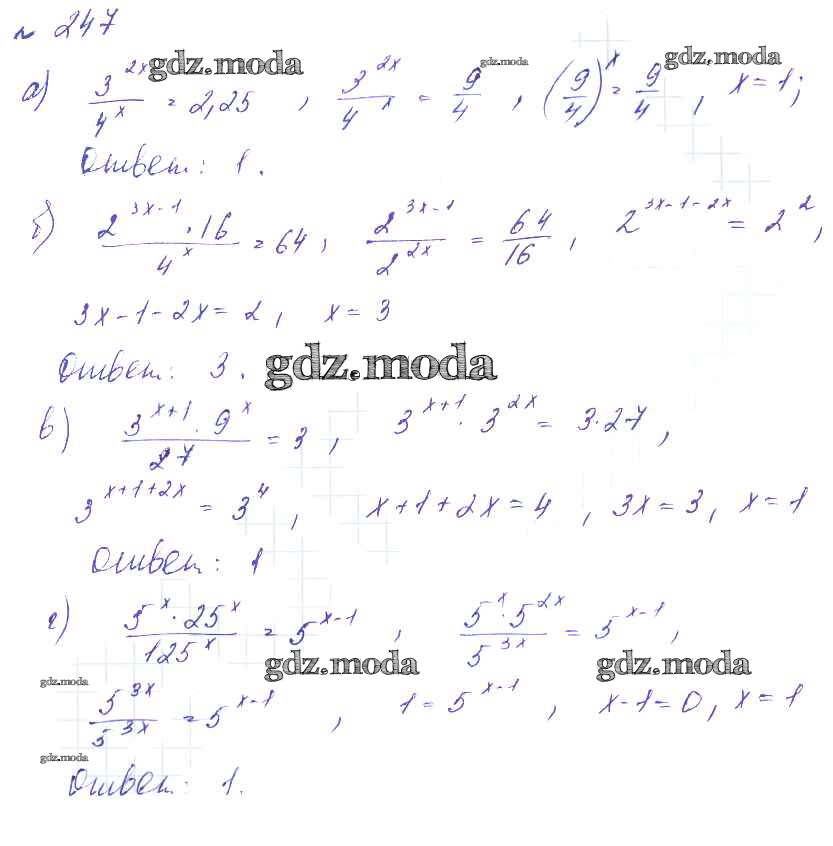 № 247
а) 3^(2x)/4^x = 2,25 , 3^(2x)/4^x = 9/4 , (9/4)^x = 9/4 , x = 1;
gdz.moda gdz.moda gdz.moda
Ответ: 1.
б) 2^(3x-1)·16/4^x = 64, 2^(3x-1)/2^(2x) = 64/16 , 2^(3x-1-2x) = 2^2,
3x-1-2x = 2, x = 3
Ответ: 3.
gdz.moda
в) 3^(x+1)·9^x/27 = 3 , 3^(x+1)·3^(2x) = 3·27 ,
3^(x+1+2x) = 3^4 , x+1+2x = 4 , 3x = 3, x = 1
Ответ: 1
г) 5^x·25^x/125^x = 5^(x-1) , 5^x·5^(2x)/5^(3x) = 5^(x-1) ,
gdz.moda gdz.moda
gdz.moda
5^(3x)/5^(3x) = 5^(x-1) , 1 = 5^(x-1) , x-1 = 0, x = 1
gdz.moda
Ответ: 1.